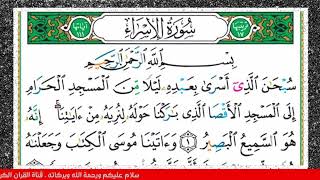 سُورَةُ الإِسْرَاءِ
بِسْمِ ٱللَّهِ ٱلرَّحْمَٰنِ ٱلرَّحِيمِ
سُبْحَٰنَ ٱلَّذِىٓ أَسْرَىٰ بِعَبْدِهِۦ لَيْلًا مِّنَ ٱلْمَسْجِدِ ٱلْحَرَامِ
إِلَى ٱلْمَسْجِدِ ٱلْأَقْصَا ٱلَّذِى بَٰرَكْنَا حَوْلَهُۥ لِنُرِيَهُۥ مِنْ ءَايَٰتِنَآ ۚ إِنَّهُۥ
هُوَ ٱلسَّمِيعُ ٱلْبَصِيرُ ١ وَءَاتَيْنَا مُوسَى ٱلْكِتَٰبَ وَجَعَلْنَٰهُ
سلام عليكم ورحمة الله وبركاته . قناة القران الكر